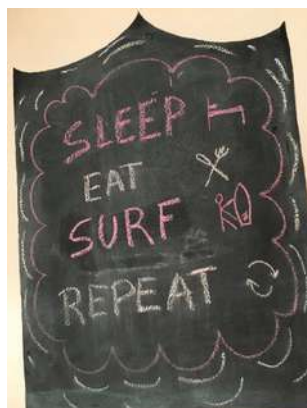 SLEEP
EAT
SURF
REPEAT